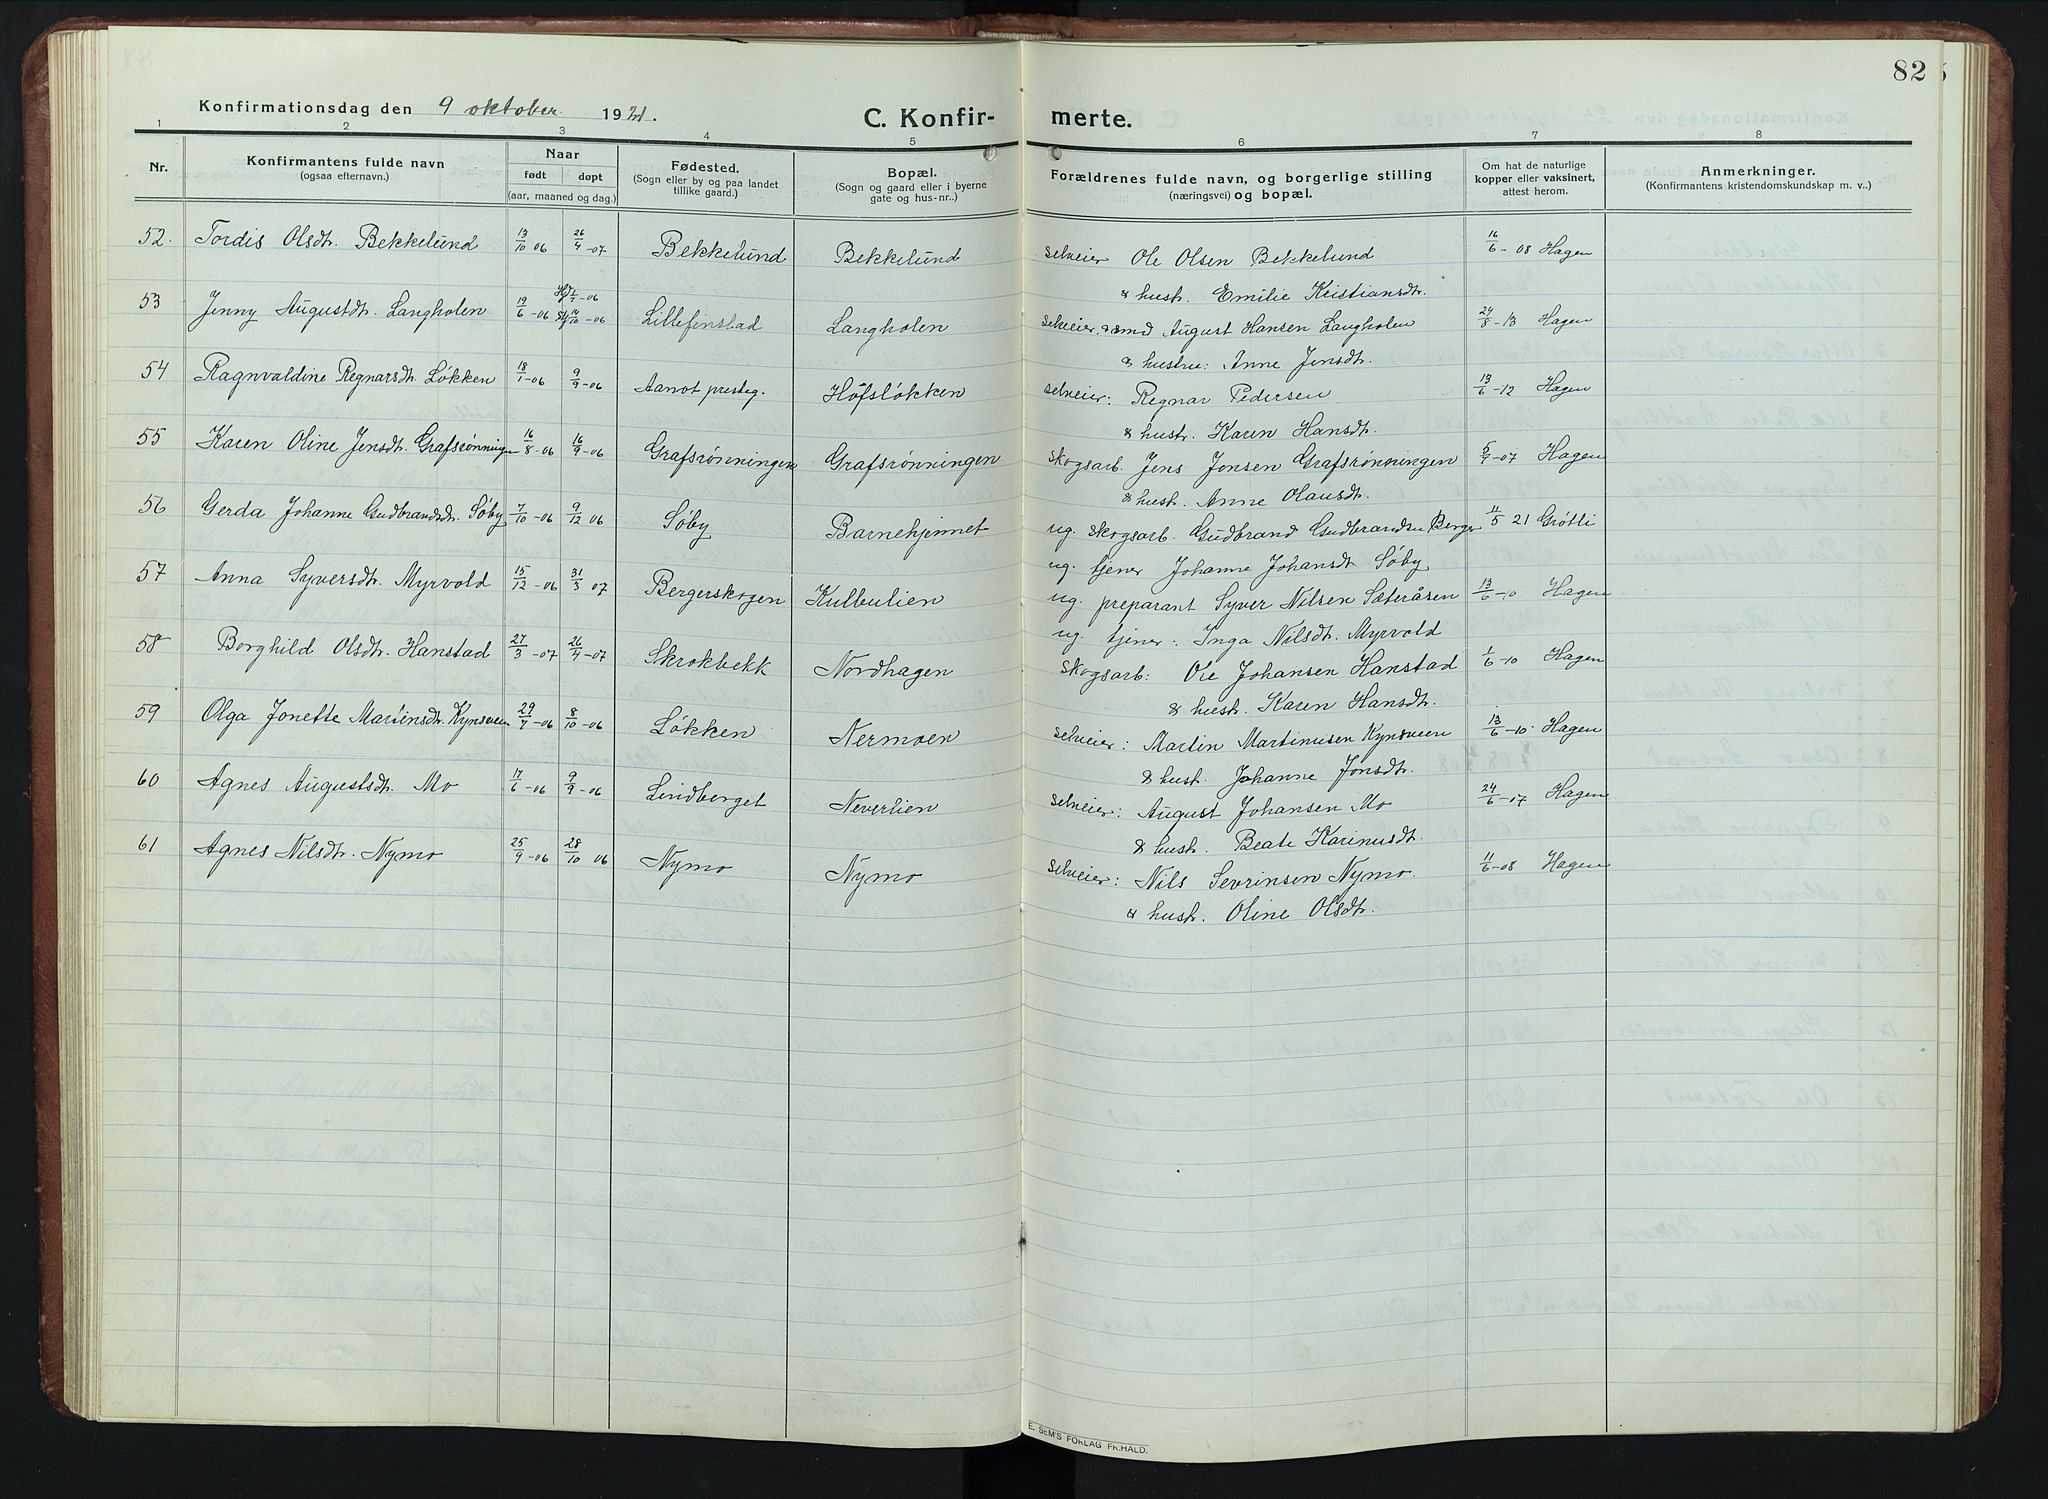 82
Konfirmationsdag den 9 oktober 1921.
C. Konfir- merte.
1 2 3 4 5 6 7 8
Nr.
Konfirmantens fulde navn
(ogsaa efternavn.)
Naar
født døpt
(aar, maaned og dag.)
Fødested.
(Sogn eller by og paa landet
tillike gaard.)
Bopæl.
(Sogn og gaard eller i byerne
gate og hus-nr..)
Forældrenes fulde navn, og borgerlige stilling
(næringsvei) og bopæl.
Om hat de naturlige
kopper eller vaksinert,
attest herom.
Anmerkninger.
(Konfirmantens kristendomskundskap m. v..)
52. Tordis Olsdtr. Bekkelund 13/10 06 26/4-07 Bekkelund Bekkelund selveier Ole Olsen Bekkelund 16/6-08 Hagen
& hust. Emilie Kristiansdtr.
53 Jenny Augustdtr. Langholen 19/6-06 -06 -06 Lillefinstad Langholen selveier August Hansen Langholen 24/8-13 Hagen
& hustru: Anne Jensdtr.
54 Ragnvaldine Regnarsdtr Løkken 18/1-06 9/9-06 Aamot presteg. Hofsløkken selveier: Regnar Pedersen 13/6-12 Hagen
& hustr. Karen Hansdtr.
55 Karen Oline Jensdtr. Grafsrønningen 16/8-06 16/9-06 Grafsrønningen Grafsrønningen skogsarb. Jens Jonsen Grafsrønningen 5/7-07 Hagen
& hust. Anne Olausdtr.
56 Gerda Johanne Gudbrandsdtr. Søby 7/10-06 9/12 06 Søby Barnehjemmet ug. skogsarb. Gudbrand Gudbrandsen Berger 11/5 21 Grøtli
ug. tjener Johanne Johansdtr Søby
57 Anna Syversdtr. Myrvold 15/12-06 31/3 07 Bergerskogen Kulbulien ug. preparant Syver Nilsen Sæteråsen 13/6-10 Hagen
ug. tjener: Inga Nilsdtr. Myrvold
58 Borghild Olsdtr. Hanstad 27/3-07 26/4-07 Skrokbekk Nordhagen skogsarb: Ole Johansen Hanstad 1/6-10 Hagen
& hust. Karen Hansdtr.
59 Olga Jonette Martinsdtr. Kynsveen 29/7-06 8/10-06 Løkken Nermoen selveier: Martin Martinusen Kynsveen 13/6-10 Hagen
& hust. Johanne Jonsdtr.
60 Agnes Augustsdtr. Mo 17/6-06 9/9-06 Lindberget Neverlien selveier: August Johansen Mo 24/6-17 Hagen
& hust. Beate Karinusdtr.
61 Agnes Nilsdtr. Nymo 25/9-06 28/10 06 Nymo Nymo selveier: Nils Sevrinsen Nymo. 11/6-08 Hagen
& hust. Oline Olsdtr.
E. SEM'S FORLAG FR.HALD.